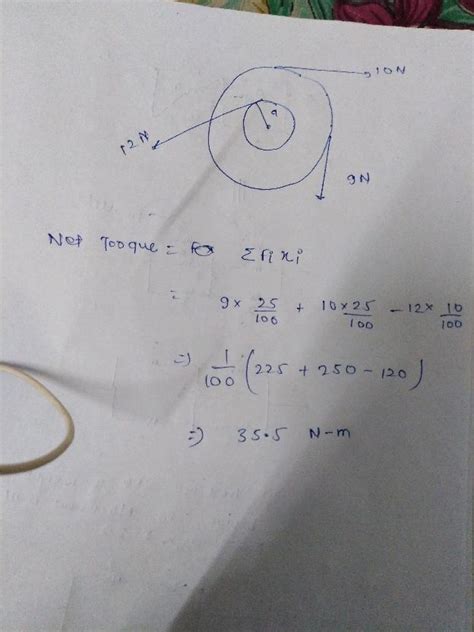 10N
a
12N
9N
Net Torque = Σ Fi xi
= 9 × 25/100 + 10 × 25/100 - 12 × 10/100
=> 1/100 (225 + 250 - 120)
=> 35.5 N-m